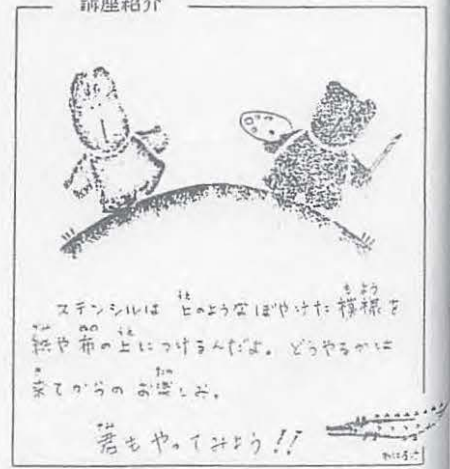 講座紹介
ステンシルは 上のようなぼやけた模様を
絵や布の上につけるんだよ。どうやるかは
来てからのお楽しみ。
君もやってみよう!!